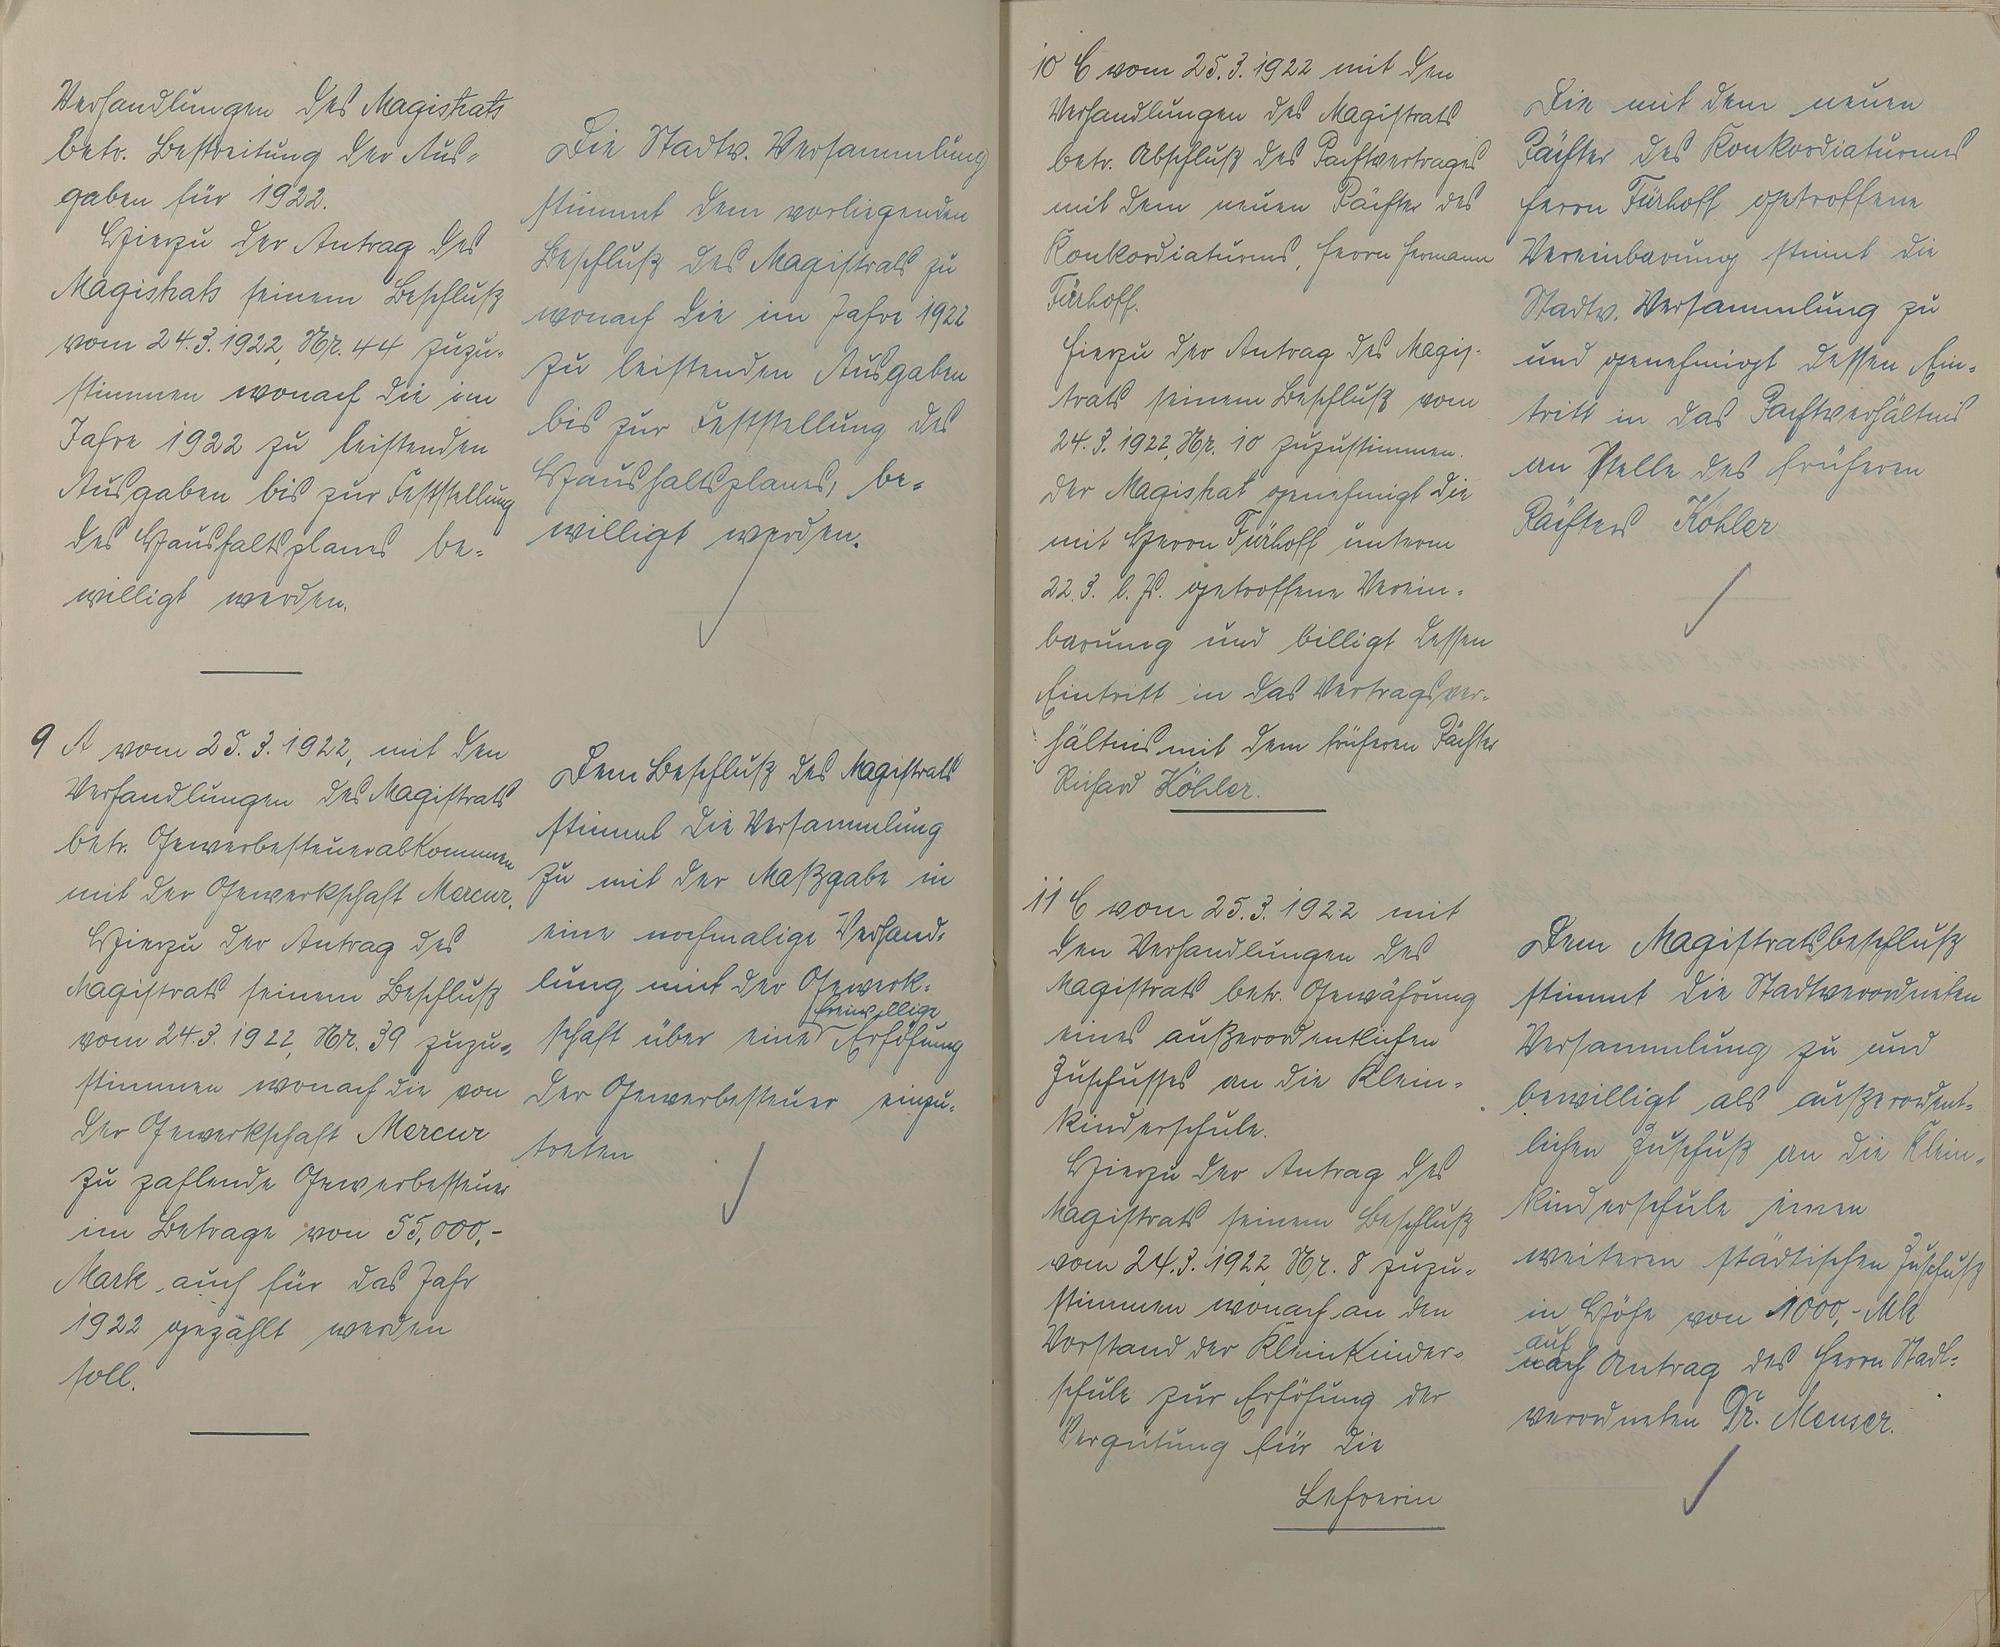 Verhandlungen des Magistrats
betr. Bestreitung der Aus-
gaben für 1922.
Hierzu der Antrag des
Magistrats seinem Beschluß
vom 24.3.1922, Nr. 44 zuzu-
stimmen wonach die im
Jahre 1922 zu leistenden
Ausgaben bis zur Feststellung
des Haushaltsplanes be-
willigt werden.
Die Stadtv. Versammlung
stimmt dem vorliegenden
Beschluß des Magistrats zu
wonach die im Jahre 1922
zu leistenden Ausgaben
bis zur Feststellung des
Haushaltsplanes, be-
willigt werden.
9 A vom 25.3.1922, mit den
Verhandlungen des Magistrats
betr. Gewerbesteuerabkommen
mit der Gewerkschaft Mercur.
Hierzu der Antrag des
Magistrats seinem Beschluß
vom 24.3.1922, Nr. 39 zuzu-
stimmen wonach die von
der Gewerkschaft Mercur
zu zahlende Gewerbesteuer
im Betrage von 55,000,-
Mark auch für das Jahr
1922 gezahlt werden
soll.
Dem Beschluß des Magistrats
stimmt die Versammlung
zu mit der Maßgabe in
eine nochmalige Verhand-
lung mit der Gewerk-
freiwillige
schaft über eine Erhöhung
der Gewerbesteuer einzu-
treten
10 C vom 25.3.1922 mit den
Verhandlungen des Magistrats
betr. Abschluß des Pachtvertrages
mit dem neuen Pächter des
Konkordiaturms, Herrn Hermann
Türhoff.
Hierzu der Antrag des Magis-
trats seinem Beschluß vom
24.3.1922, Nr. 10 zuzustimmen.
Der Magistrat genehmigt die
mit Herrn Türhoff unterm
22.3. l. Js. getroffene Verein-
barung und billigt dessen
Eintritt in das Vertragsver-
hältnis mit dem früheren Pächter
Richard Köhler.
Die mit dem neuen
Pächter des Konkordiaturms
Herrn Türhoff getroffene
Vereinbarung stimt die
Stadtv. Versammlung zu
und genehmigt dessen Ein-
tritt in das Pachtverhältnis
an Stelle des früheren
Pächters Köhler
11 C vom 25.3.1922 mit
den Verhandlungen des
Magistrats betr. Gewährung
eines außerordentlichen
Zuschusses an die Klein-
kinderschule.
Hierzu der Antrag des
Magistrats seinem Beschluß
vom 24.3.1922, Nr. 8 zuzu-
stimmen wonach an den
Vorstand der Kleinkinder-
schule zur Erhöhung der
Vergütung für die
Lehrerin
Dem Magistratsbeschluß
stimmt die Stadtverordneten
Versammlung zu und
bewilligt als außerordent-
lichen Zuschuß an die Klein-
kinderschule einen
weiteren städtischen Zuschuß
in Höhe von 1000,- Mk
auf
nach Antrag des Herrn Stadt-
verordneten Dr. Menser.